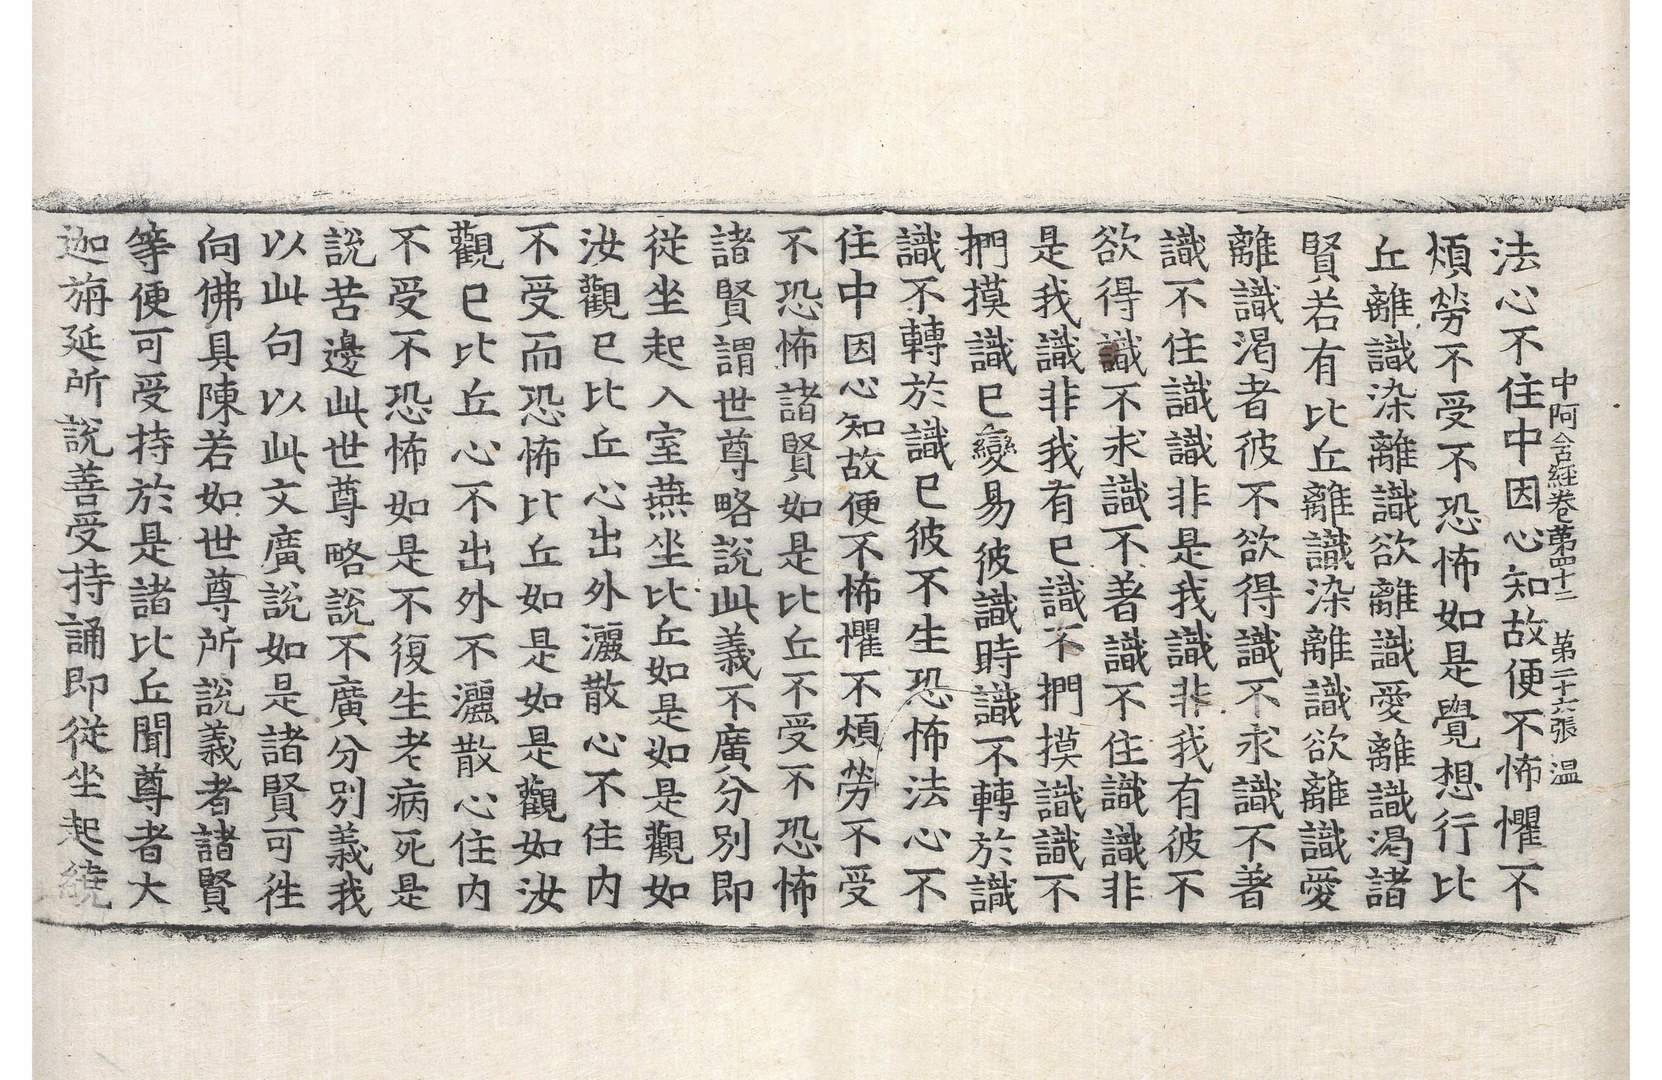 中阿含経卷第四十二 第二十六張 温
法心不住中因心知故便不怖懼不
煩勞不受不恐怖如是覺想行比
丘離識染離識欲離識愛離識渴諸
賢若有比丘離識染離識欲離識愛
離識渴者彼不欲得識不求識不著
識不住識識非是我識非我有彼不
欲得識不求識不著識不住識識非
是我識非我有已識不捫摸識識不
捫摸識已變易彼識時識不轉於識
識不轉於識已彼不生恐怖法心不
住中因心知故便不怖懼不煩勞不受
不恐怖諸賢如是比丘不受不恐怖
諸賢謂世尊略說此義不廣分別即
從坐起入室燕坐比丘如是如是觀如
汝觀已比丘心出外灑散心不住内
不受而恐怖比丘如是如是觀如汝
觀已比丘心不出外不灑散心住内
不受不恐怖如是不復生老病死是
說苦邊此世尊略說不廣分別義我
以此句以此文廣說如是諸賢可往
向佛具陳若如世尊所說義者諸賢
等便可受持於是諸比丘聞尊者大
迦旃延所說善受持誦即從坐起繞